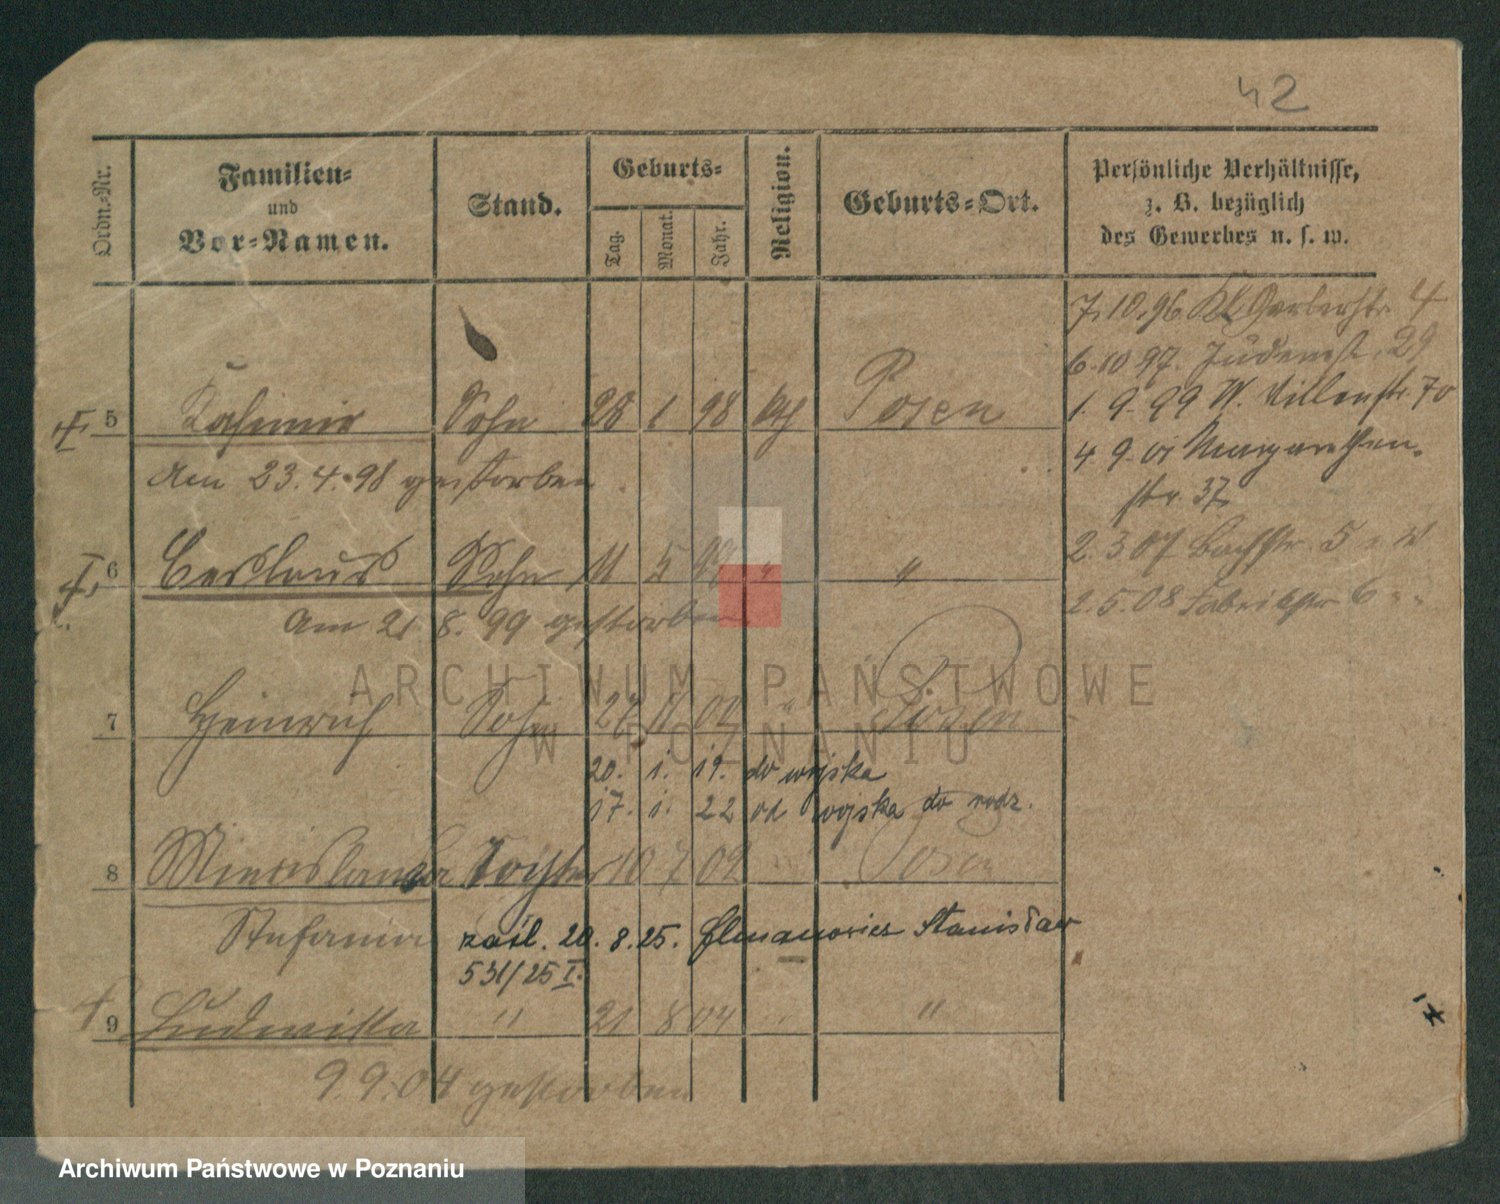 42
Ordn.-Nr. Familien- und Vor-Namen. Stand. Geburts- Tag. Monat. Jahr. Religion. Geburts-Ort. Persönliche Verhältnisse, z. B. bezüglich des Gewerbes u. s. w.
7.10.96 Kl. Gerberstr. 4
6.10 97. Judenstr. 29
1. 9. 99 W. Villenstr. 70
5 Kasimir Sohn 28 1 98 kth Posen
4 9. 01 Margarethen-
str. 37
am 23.4.98 gestorben
2. 3 07 Bachstr. 5
6 Ceslaus Sohn 11 5 " "
2.5.08 Fabrikstr 6 " "
Am 21. 8. 99 gestorben
7 Heinrich Sohn 27 11 " Posen
20. 1. 19. do wojska
17. 1. 22 od wojska do rodz.
8 Miecislawa Tochter 10 7 02 " Posen
Stefania zaśl. 20. 8. 25. Elmanowicz Stanisław
531/25 I.
9 Ludwika " 21 8 04 " "
9. 9. 04 gestorben
ARCHIWUM PAŃSTWOWE
W POZNANIU
Archiwum Państwowe w Poznaniu